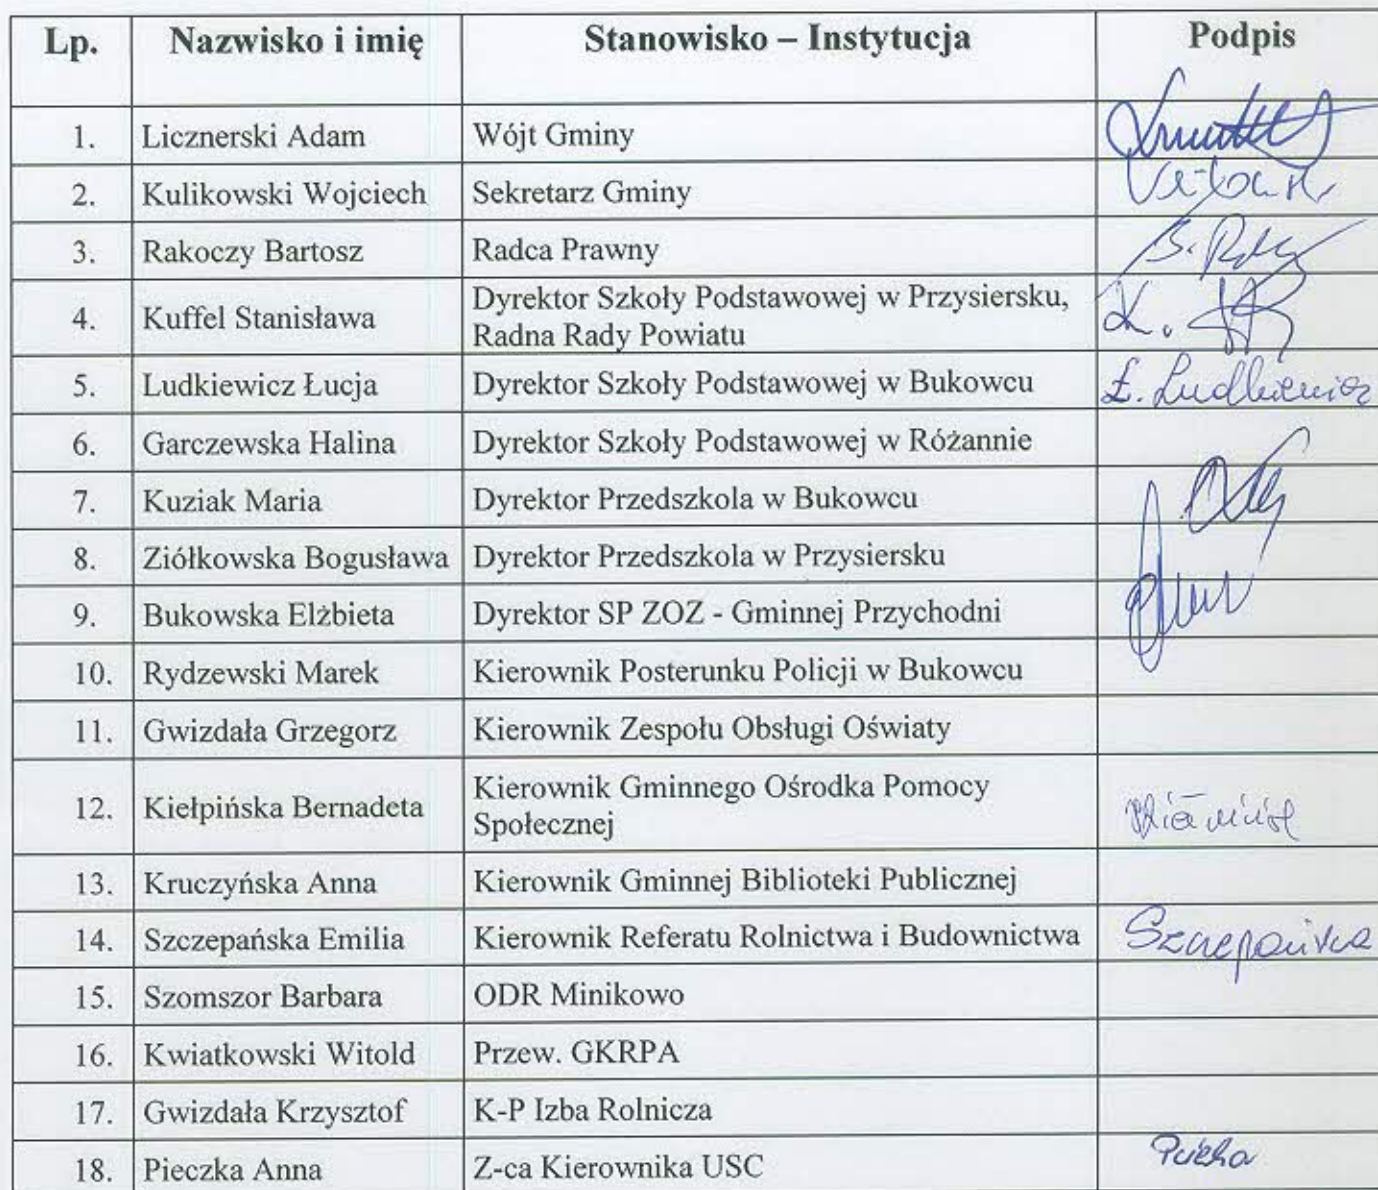 Lp. Nazwisko i imię Stanowisko – Instytucja Podpis
1. Licznerski Adam Wójt Gminy
2. Kulikowski Wojciech Sekretarz Gminy
3. Rakoczy Bartosz Radca Prawny
4. Kuffel Stanisława Dyrektor Szkoły Podstawowej w Przysiersku,
Radna Rady Powiatu
5. Ludkiewicz Łucja Dyrektor Szkoły Podstawowej w Bukowcu Ł. Ludkiewicz
6. Garczewska Halina Dyrektor Szkoły Podstawowej w Różannie
7. Kuziak Maria Dyrektor Przedszkola w Bukowcu
8. Ziółkowska Bogusława Dyrektor Przedszkola w Przysiersku
9. Bukowska Elżbieta Dyrektor SP ZOZ - Gminnej Przychodni
10. Rydzewski Marek Kierownik Posterunku Policji w Bukowcu
11. Gwizdała Grzegorz Kierownik Zespołu Obsługi Oświaty
12. Kiełpińska Bernadeta Kierownik Gminnego Ośrodka Pomocy
Społecznej
13. Kruczyńska Anna Kierownik Gminnej Biblioteki Publicznej
14. Szczepańska Emilia Kierownik Referatu Rolnictwa i Budownictwa Szczepańska
15. Szomszor Barbara ODR Minikowo
16. Kwiatkowski Witold Przew. GKRPA
17. Gwizdała Krzysztof K-P Izba Rolnicza
18. Pieczka Anna Z-ca Kierownika USC